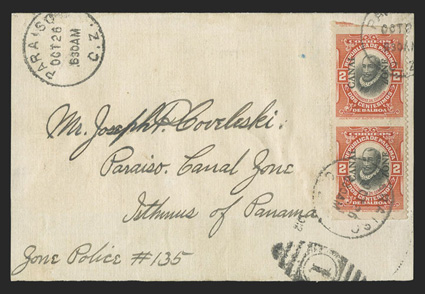 PARAISO C.Z.
OCT 26
630AM
CORREOS
REPUBLICA DE PANAMA
CANAL
2 2
DOS CENTESIMOS
DE BALBOA
CORREOS
REPUBLICA DE PANAMA
CANAL
2 2
DOS CENTESIMOS
DE BALBOA
Mr. Joseph P. Coveleski.
Paraiso. Canal Zone
Isthmus of Panama
Zone Police #135
1